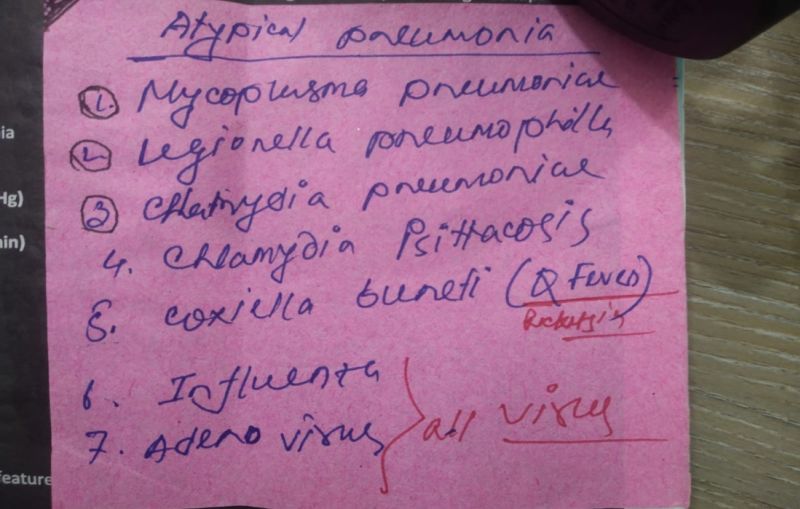 Atypical pneumonia
1. Mycoplasma pneumoniae
2. Legionella pneumophilla
3 Chlamydia pneumoniae
4. Chlamydia Psittacosis
5. Coxiella buneti (Q Fever)
Rickettsia
6. Influenza
7. Adeno virus
all virus
ia
Hg)
in)
feature